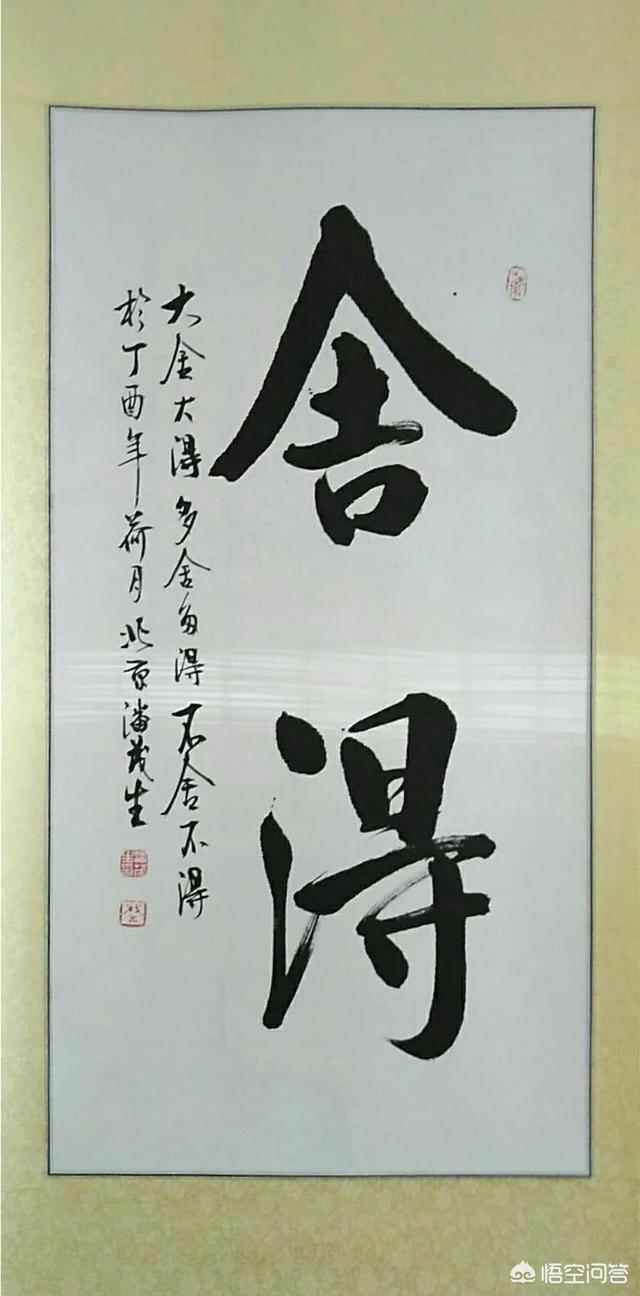 舍得
大舍大得多舍多得不舍不得
於丁酉年荷月北京潘茂生
悟空问答